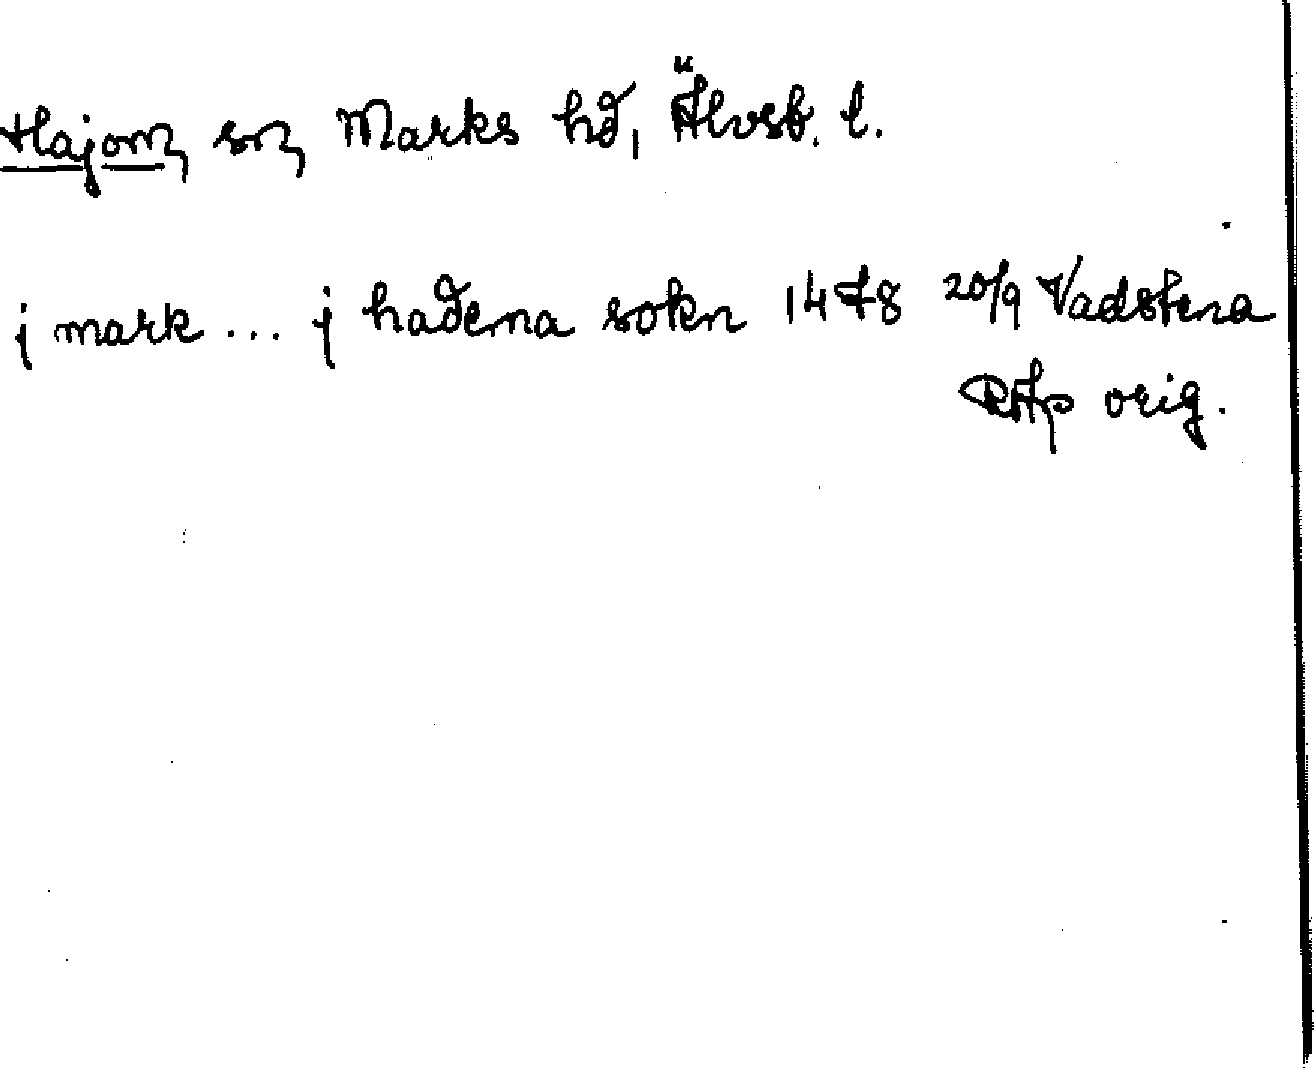 Hajom, sn, Marks hd, Älvsb. l.
j mark ... j haderna sokn 1478 20/9 Vadstena
RAp orig.